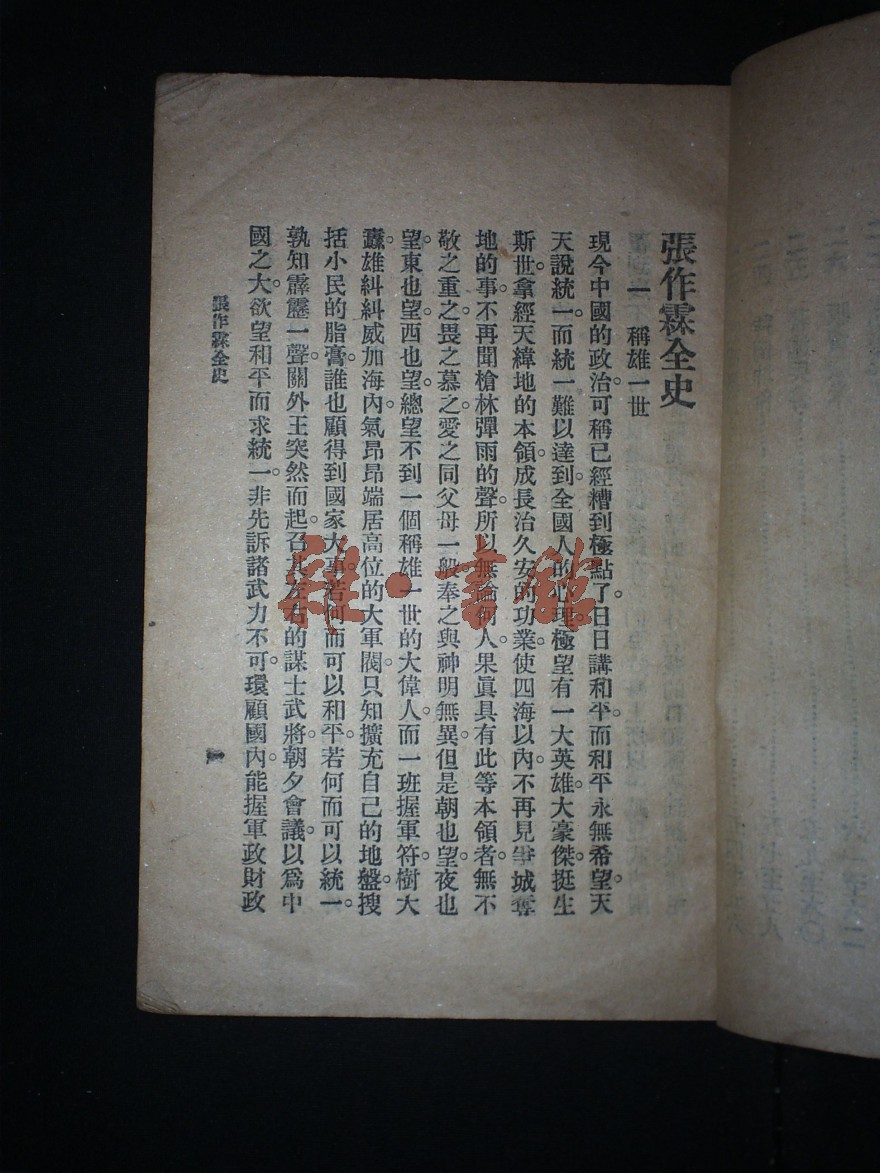 張作霖全史
一 稱雄一世
現今中國的政治。可稱已經糟到極點了。日日講和平。而和平永無希望。天
天說統一。而統一難以達到。全國人的心理。極望有一大英雄。大豪傑。挺生
斯世。拿經天緯地的本領。成長治久安的功業。使四海以內。不再見爭城奪
地的事。不再聞槍林彈雨的聲。所以無論何人。果眞具有此等本領者。無不
敬之重之。畏之慕之。愛之同父母一般。奉之與神明無異。但是朝也望。夜也
望。東也望。西也望。總望不到一個稱雄一世的大偉人。而一班握軍符樹大
纛。雄糾糾威加海內。氣昂昂端居高位的大軍閥。只知擴充自己的地盤。搜
括小民的脂膏。誰也顧得到國家大事。若何而可以和平。若何而可以統一。
孰知霹靂一聲。關外王突然而起。召其左右的謀士武將。朝夕會議。以爲中
國之大。欲望和平而求統一。非先訴諸武力不可。環顧國內。能握軍政財政
張作霖全史
一
雜·書館